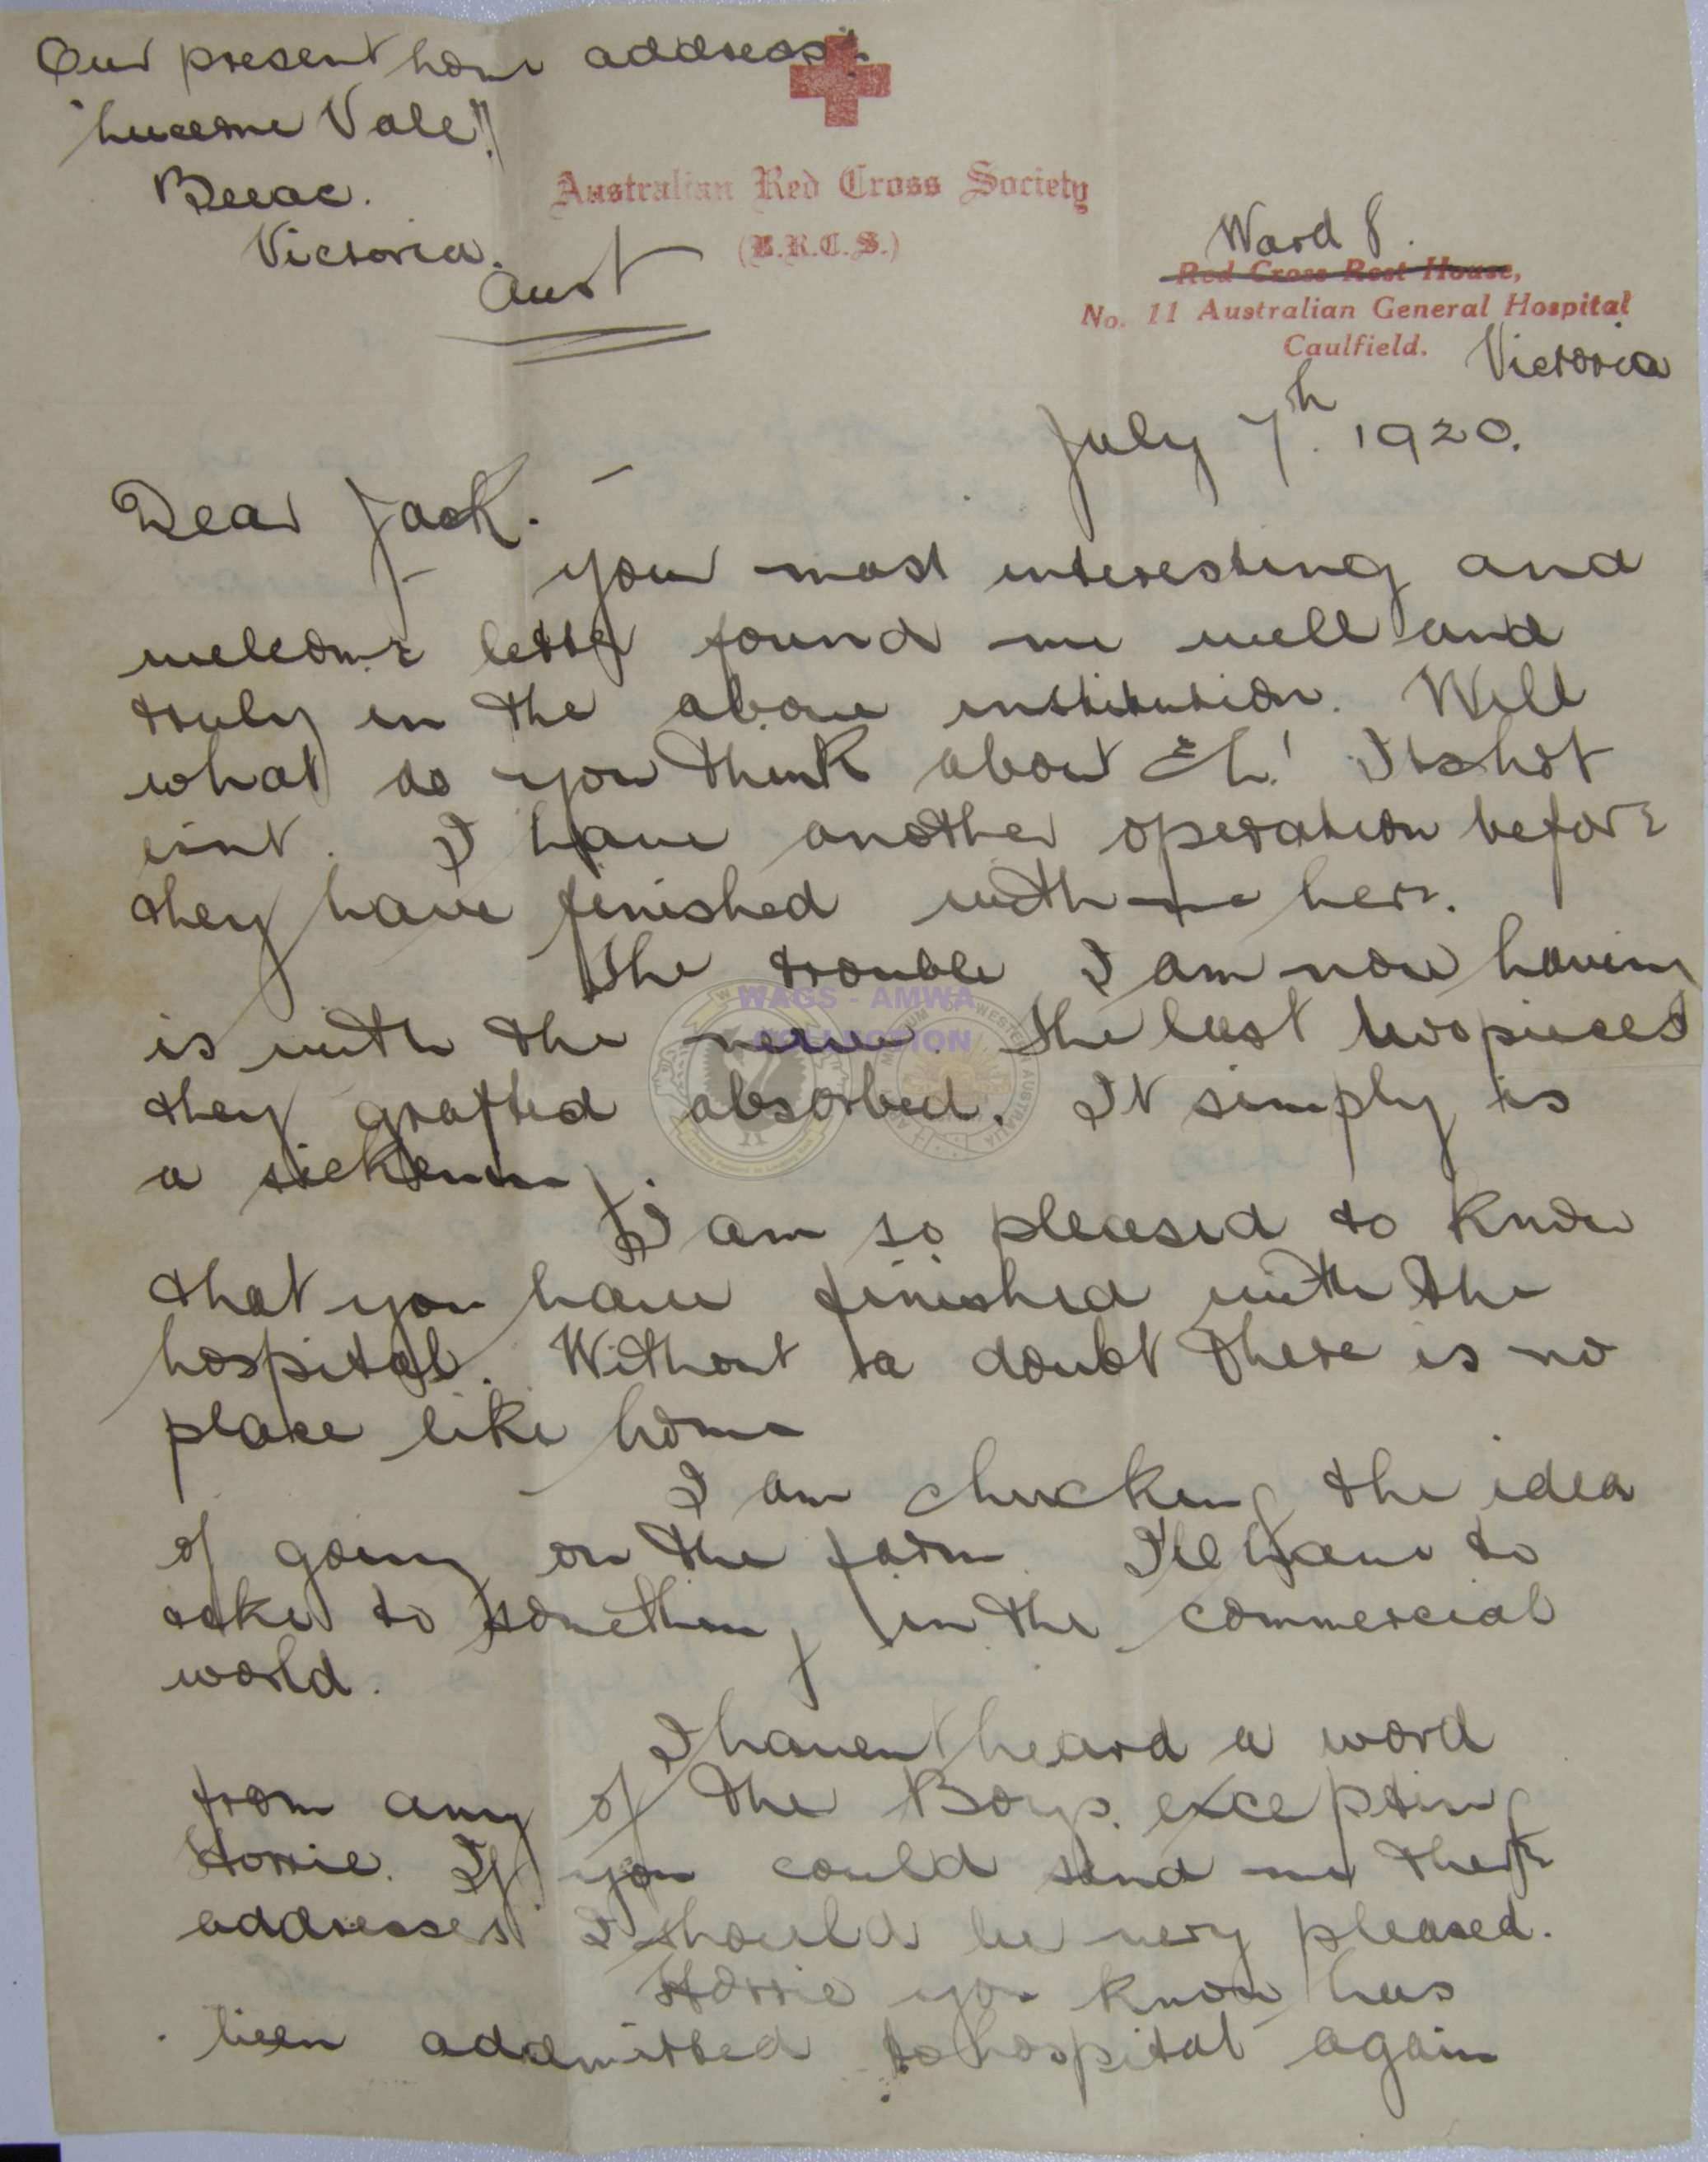 Our present home address:
"Lucerne Vale"
Beeac.
Victoria.
Aust
Australian Red Cross Society
(B.R.C.S.)
Ward 8.
Red Cross Rest House,
No. 11 Australian General Hospital
Caulfield. Victoria
July 7th. 1920.
Dear Jack. —
Your most interesting and
welcome letter found me well and
truly in the above institution. Well
what do you think about Eh! Its hot
isnt. I have another operation before
they have finished with me here.
The trouble I am now having
is with the nerve. The last two pieces
they grafted absorbed. It simply is
a sickening
I am so pleased to know
that you have finished with the
hospital. Without a doubt there is no
place like home
I am chucking the idea
of going on the farm. Ill have to
take to something in the commercial
world.
I havent heard a word
from any of the Boys. excepting
Horrie. If you could send me their
addresses I should be very pleased.
Horrie you know has
been addmitted to hospital again
WAGS - AMWA
COLLECTION